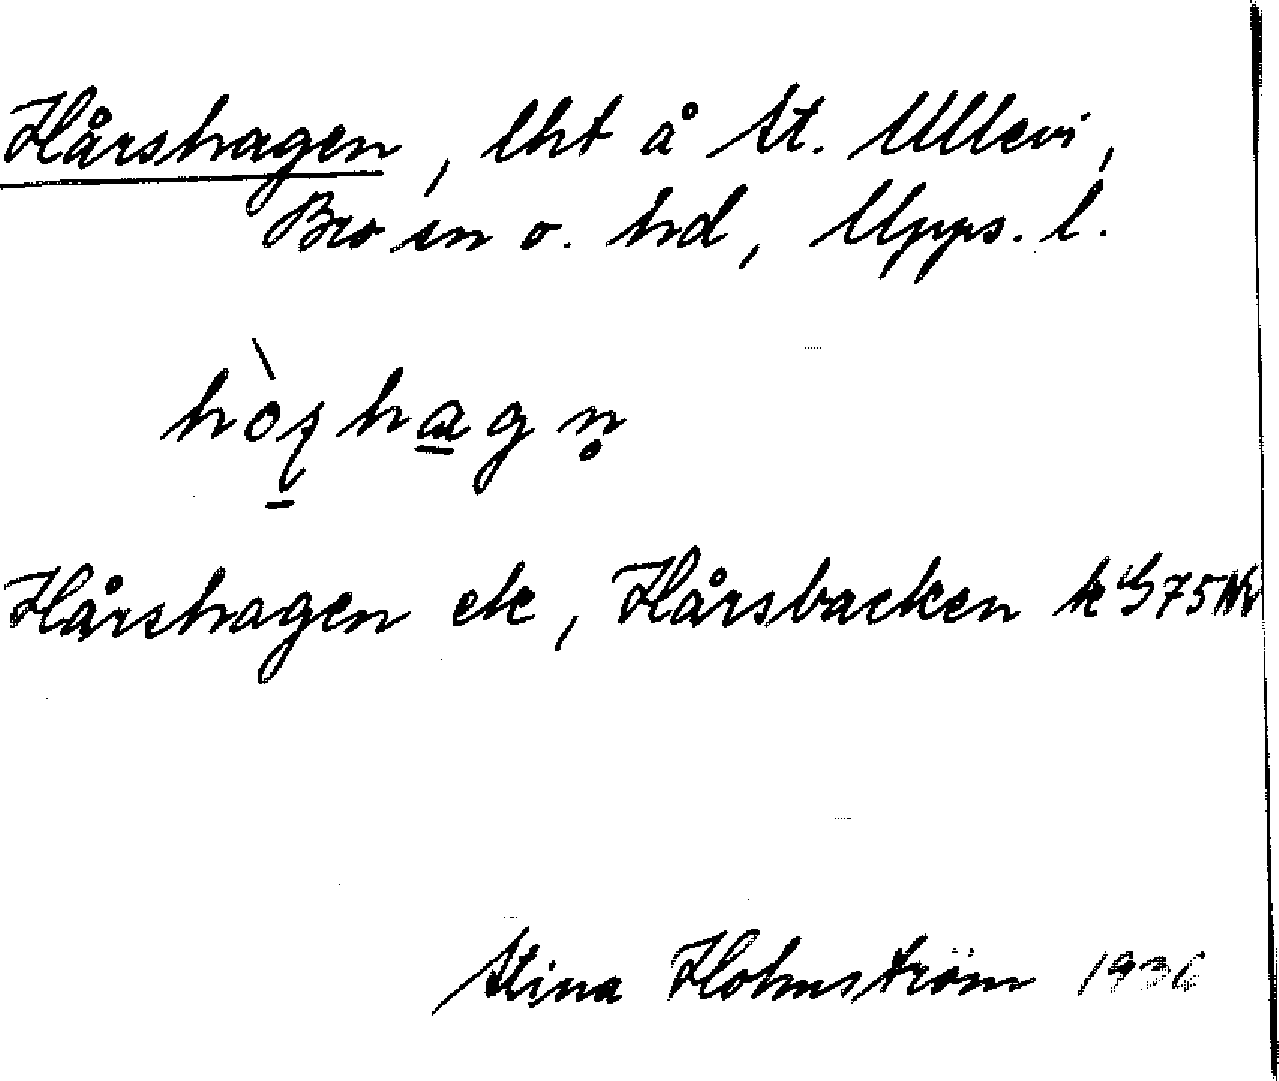 Hårshagen, lht å St. Ullevi,
Bro sn o. hd, Upps. l.
Hårshagen ek, Hårsbacken k
Stina Holmström 1936